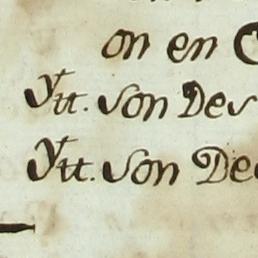 on en
Ytt. son Des
Ytt. son De